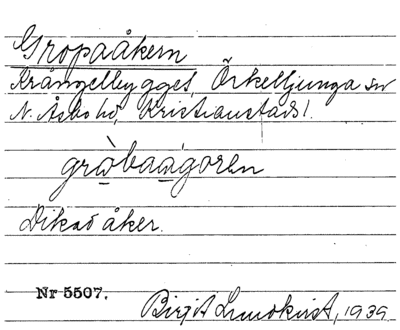 Gropaåkern
Krångelbygget, Örkelljunga sn
N. Åsbo hd, Kristianstads l.
Dikad åker.
Nr 5507.
Birgit Lundkvist, 1939